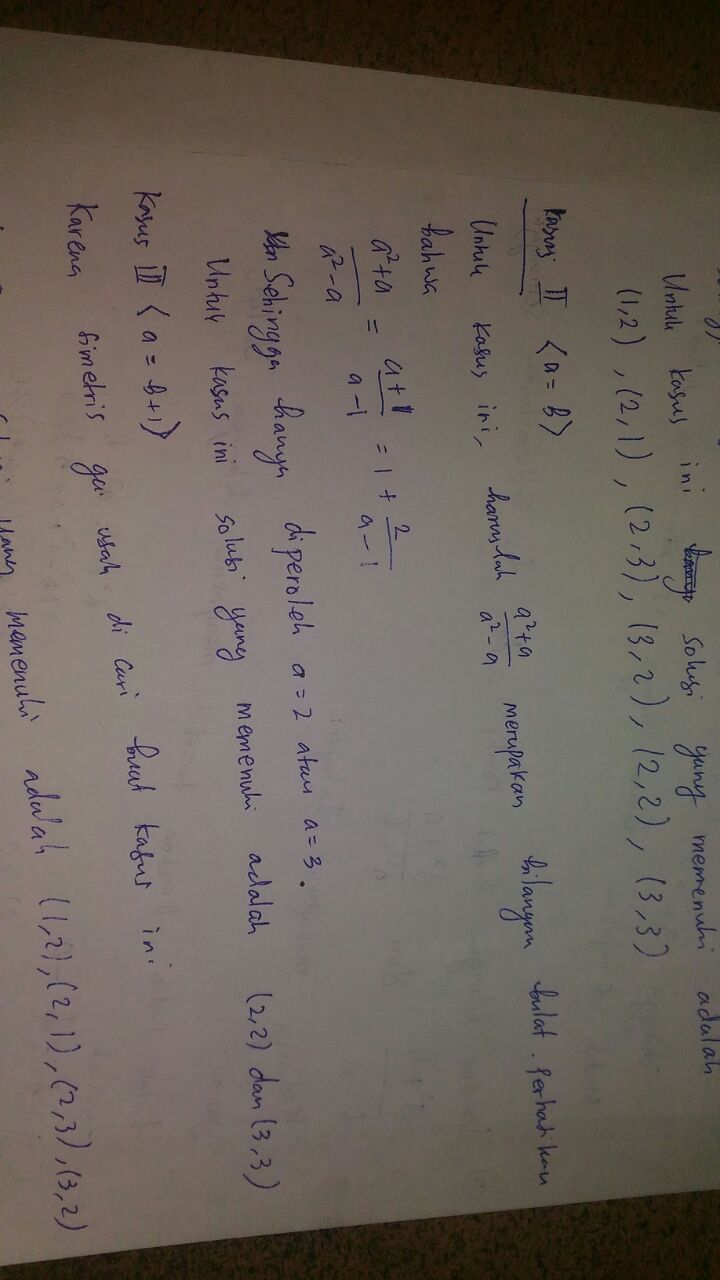 Untuk kasus ini solusi yang memenuhi adalah
(1,2) , (2,1) , (2,3) , (3,2) , (2,2) , (3,3)
Kasus II < a = b >
Untuk kasus ini, haruslah (a²+a)/(a²-a) merupakan bilangan bulat. Perhatikan
bahwa
(a²+a)/(a²-a) = (a+1)/(a-1) = 1 + 2/(a-1)
Sehingga hanya diperoleh a = 2 atau a = 3.
Untuk kasus ini solusi yang memenuhi adalah (2,2) dan (3,3)
Kasus III < a = b+1 >
Karena simetris ga usah di cari buat kasus ini
solusi yang memenuhi adalah (1,2), (2,1), (2,3), (3,2)